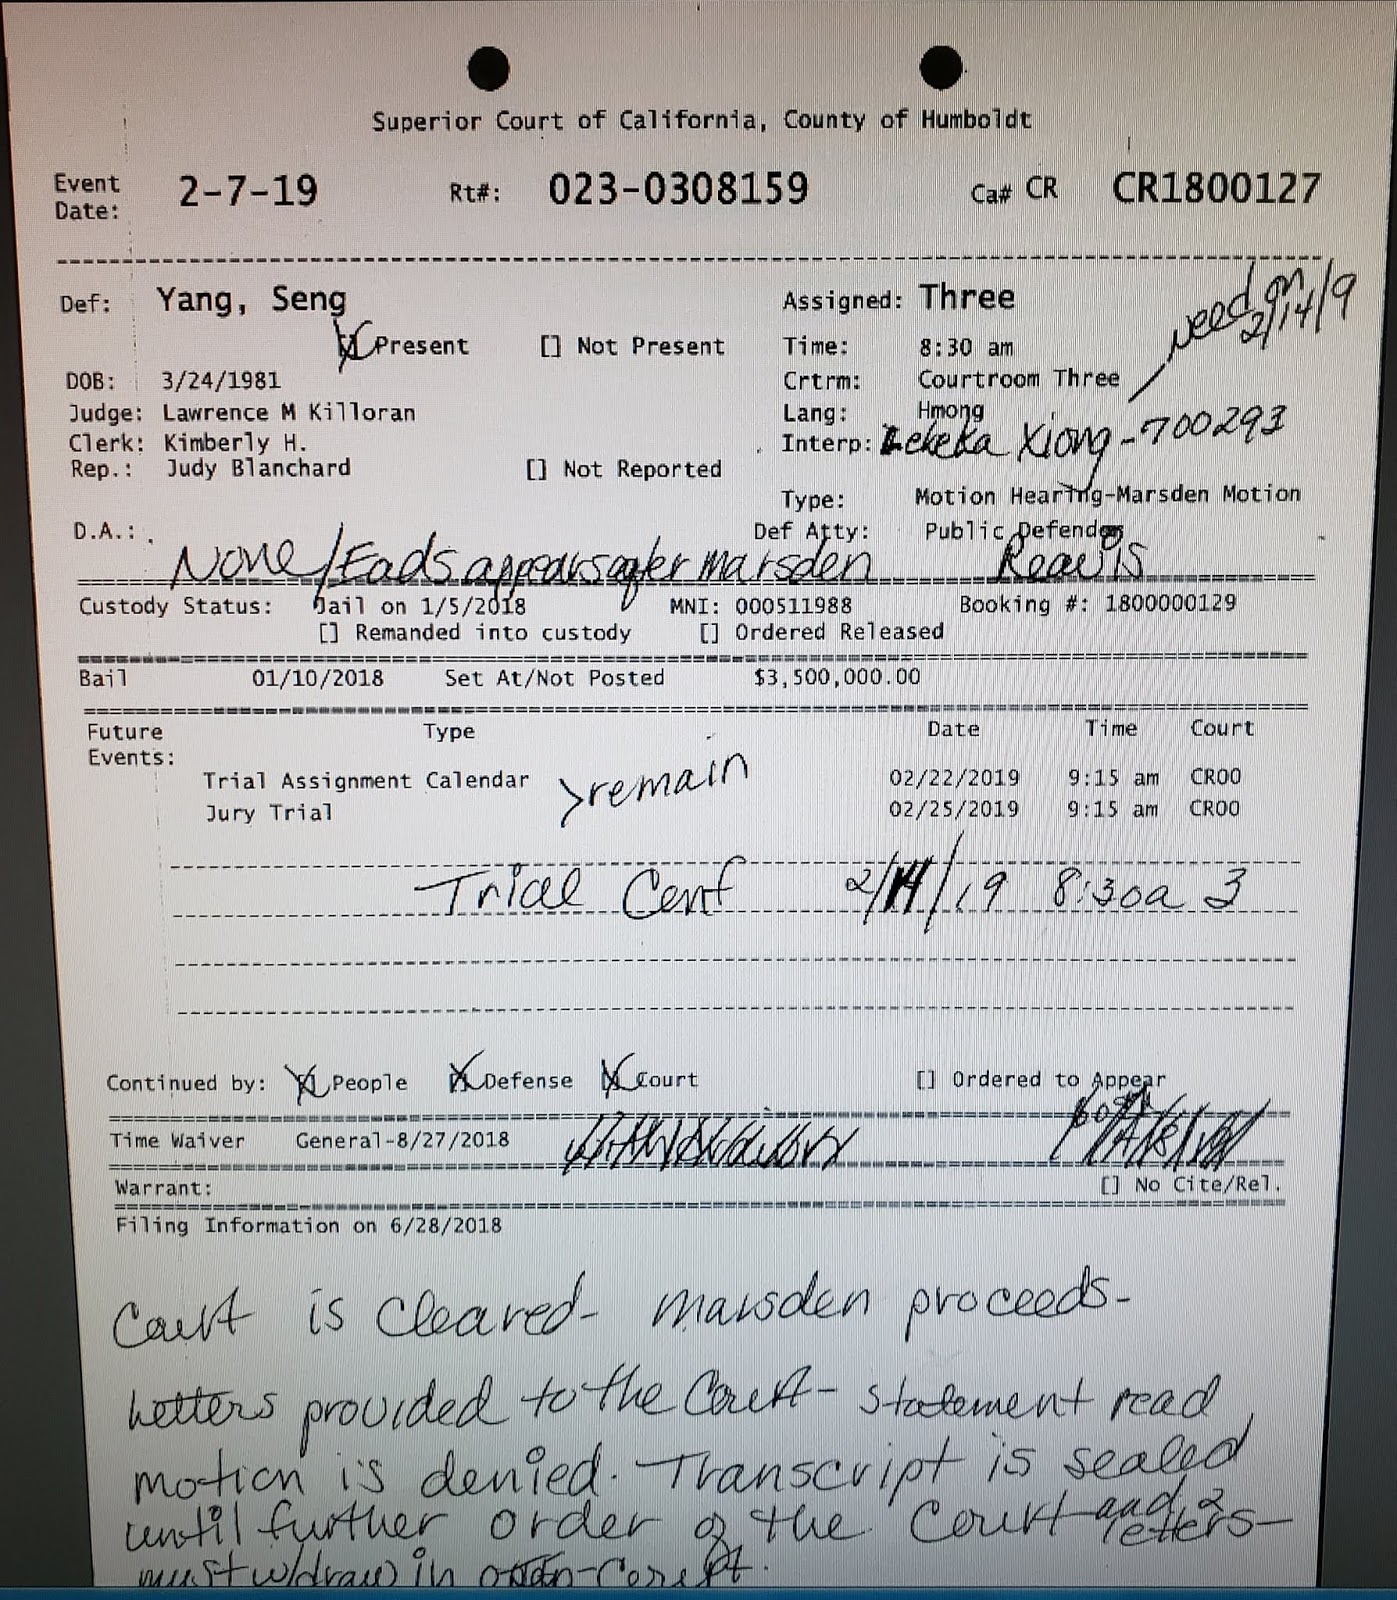 Superior Court of California, County of Humboldt
Event Date: 2-7-19 Rt#: 023-0308159 Ca# CR CR1800127
Def: Yang, Seng Assigned: Three need on 2/14/19
[X] Present [] Not Present Time: 8:30 am
DOB: 3/24/1981 Crtrm: Courtroom Three
Judge: Lawrence M Killoran Lang: Hmong
Clerk: Kimberly H. Interp: Lekeka Xiong-700293
Rep.: Judy Blanchard [] Not Reported
Type: Motion Hearing-Marsden Motion
D.A.: None/Eads appears after marsden Def Atty: Public Defender Reavis
Custody Status: Jail on 1/5/2018 MNI: 000511988 Booking #: 1800000129
[] Remanded into custody [] Ordered Released
Bail 01/10/2018 Set At/Not Posted $3,500,000.00
Future Events: Type Date Time Court
Trial Assignment Calendar >remain 02/22/2019 9:15 am CR00
Jury Trial 02/25/2019 9:15 am CR00
Trial Conf 2/14/19 8:30a 3
Continued by: [X] People [X] Defense [X] Court [] Ordered to Appear
Time Waiver General-8/27/2018
Warrant: [] No Cite/Rel.
Filing Information on 6/28/2018
Court is cleared- marsden proceeds-
letters provided to the Court- statement read
motion is denied. Transcript is sealed
until further order of the Court and 2 letters-
must w/draw in